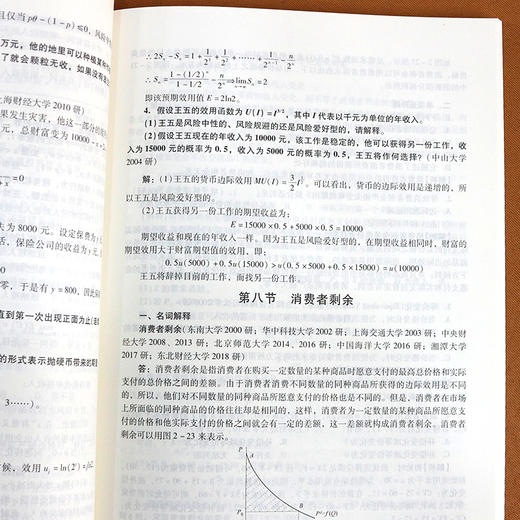 且仅当 pθ-(1-p)≤0, 风险
万元, 他的地里可以种植某种
了就会颗粒无收, 如果没有
上海财经大学 2010 研)
果发生灾害, 他这一部分的
总财富变为 10000-x
=0
夫为 8000 元。设定保费为
活, 保险公司的收益为
零, 于是有 y=800, 因此
直到第一次出现正面为止
的形式表示抛硬币带来的
3……)。
候, 效用 u_j=ln(2^j)=jln2
∴2S_n-S_n=1+1/2+1/2²+……+1/2^(n-1)-n/2^n
∴S_n=(1-(1/2)^n)/(1-1/2)-n/2^n⇒limS_n=2
即该预期效用值 E=2ln2。
4. 假设王五的效用函数为 U(I)=I^1.5, 其中 I 代表以千元为单位的年收入。
(1)王五是风险中性的、风险规避的还是风险爱好型的, 请解释。
(2)假设王五现在的年收入为 10000 元, 该工作是稳定的, 他可以获得另一份工作, 收
入为 15000 元的概率为 0.5, 收入为 5000 元的概率为 0.5, 王五将作何选择? (中山大学
2004 研)
解: (1)王五的货币边际效用 MU(I)=3/2 I^(1/2)。可以看出, 货币的边际效用是递增的, 所
以王五是风险爱好型的。
(2)王五获得另一份工作的期望收益为:
E=15000×0.5+5000×0.5=10000
期望收益和现在的年收入一样。因为王五是风险爱好型的, 在期望收益相同时, 财富的
期望效用大于财富期望值的效用, 即:
0.5u(5000)+0.5u(15000)>u(0.5×5000+0.5×15000)=u(10000)
王五将辞掉目前的工作, 而找另一份工作。
第八节 消费者剩余
一、名词解释
消费者剩余(东南大学 2000 研; 华中科技大学 2002 研; 上海交通大学 2003 研; 中央财
经大学 2008、2013 研; 北京师范大学 2014、2016 研; 中国海洋大学 2016 研; 湘潭大学
2017 研; 东北财经大学 2018 研)
答: 消费者剩余是指消费者在购买一定数量的某种商品时愿意支付的最高总价格和实际
支付的总价格之间的差额。由于消费者消费不同数量的同种商品所获得的边际效用是不同
的, 所以, 他们对不同数量的同种商品所愿意支付的价格也是不同的。但是, 消费者在市场
上所面临的同种商品的价格往往却是相同的, 这样, 消费者为一定数量的某种商品所愿意支
付的价格和他实际支付的价格之间就会有一定的差额, 这一差额就构成消费者剩余。消费者
剩余可以用图 2-23 来表示。
P
P₀
B
P^d=f(Q)